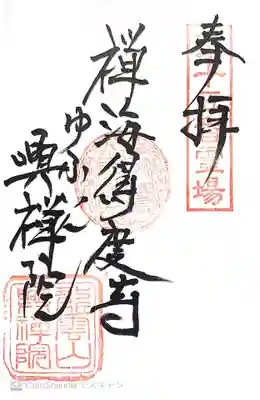 奉拝
霊場
禅海得度寺
ゆふいん
興禅院
CamScanner でスキャン